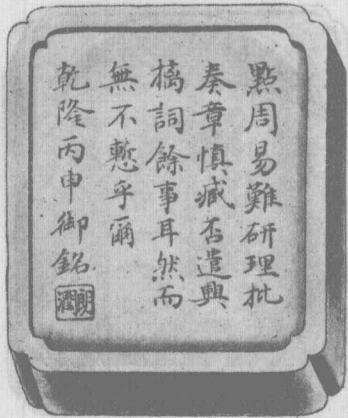 點周易難研理批
奏章慎臧否遣興
摛詞餘事耳然而
無不慙乎爾
乾隆丙申御銘
朗潤